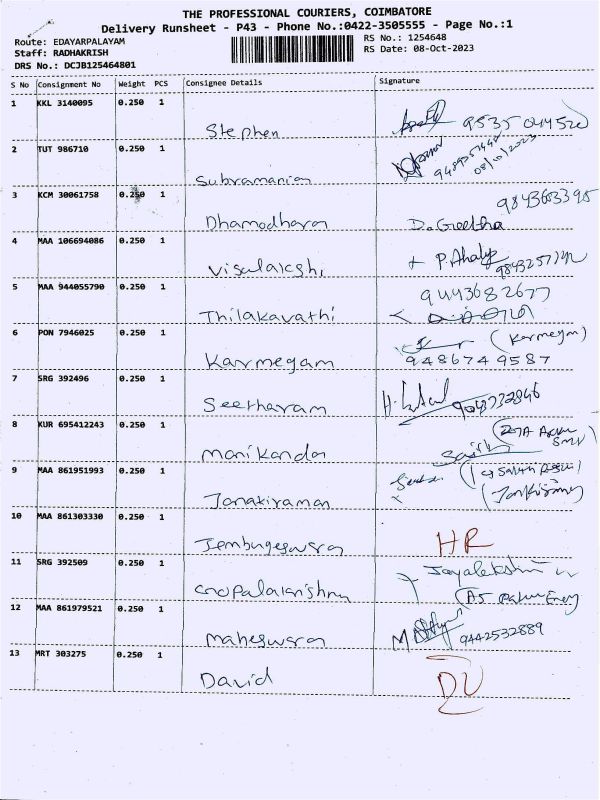 THE PROFESSIONAL COURIERS, COIMBATORE
Delivery Runsheet - P43 - Phone No.:0422-3505555 - Page No.:1
Route: EDAYARPALAYAM
RS No.: 1254648
Staff: RADHAKRISH
RS Date: 08-Oct-2023
DRS No.: DCJB125464801
S No Consignment No Weight PCS Consignee Details Signature
1 KKL 3140095 0.250 1
Stephen
2 TUT 986710 0.250 1
Subramanian 08/10/2023
3 KCM 30061758 0.250 1
Dhamodharan D. Geetha
4 MAA 106694086 0.250 1
Visalakshi P. Ahalya
5 MAA 944055790 0.250 1 9443682677
Thilakavathi
6 PON 7946025 0.250 1 (Karmegam)
Karmegam 9486749587
7 SRG 392496 0.250 1
Seetharam
8 KUR 695412243 0.250 1
Manikandan
9 MAA 861951993 0.250 1
Janakiraman
10 MAA 861303330 0.250 1
Jembugeswaran HR
11 SRG 392509 0.250 1 Jayalakshmi
Gopalakrishnan
12 MAA 861979521 0.250 1
Maheswaran 9442532889
13 MRT 303275 0.250 1
David DV